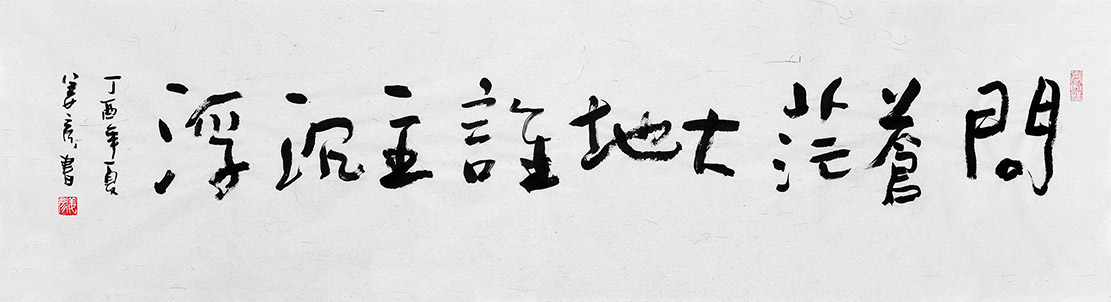 問蒼茫大地誰主沉浮
丁酉年夏
姜書